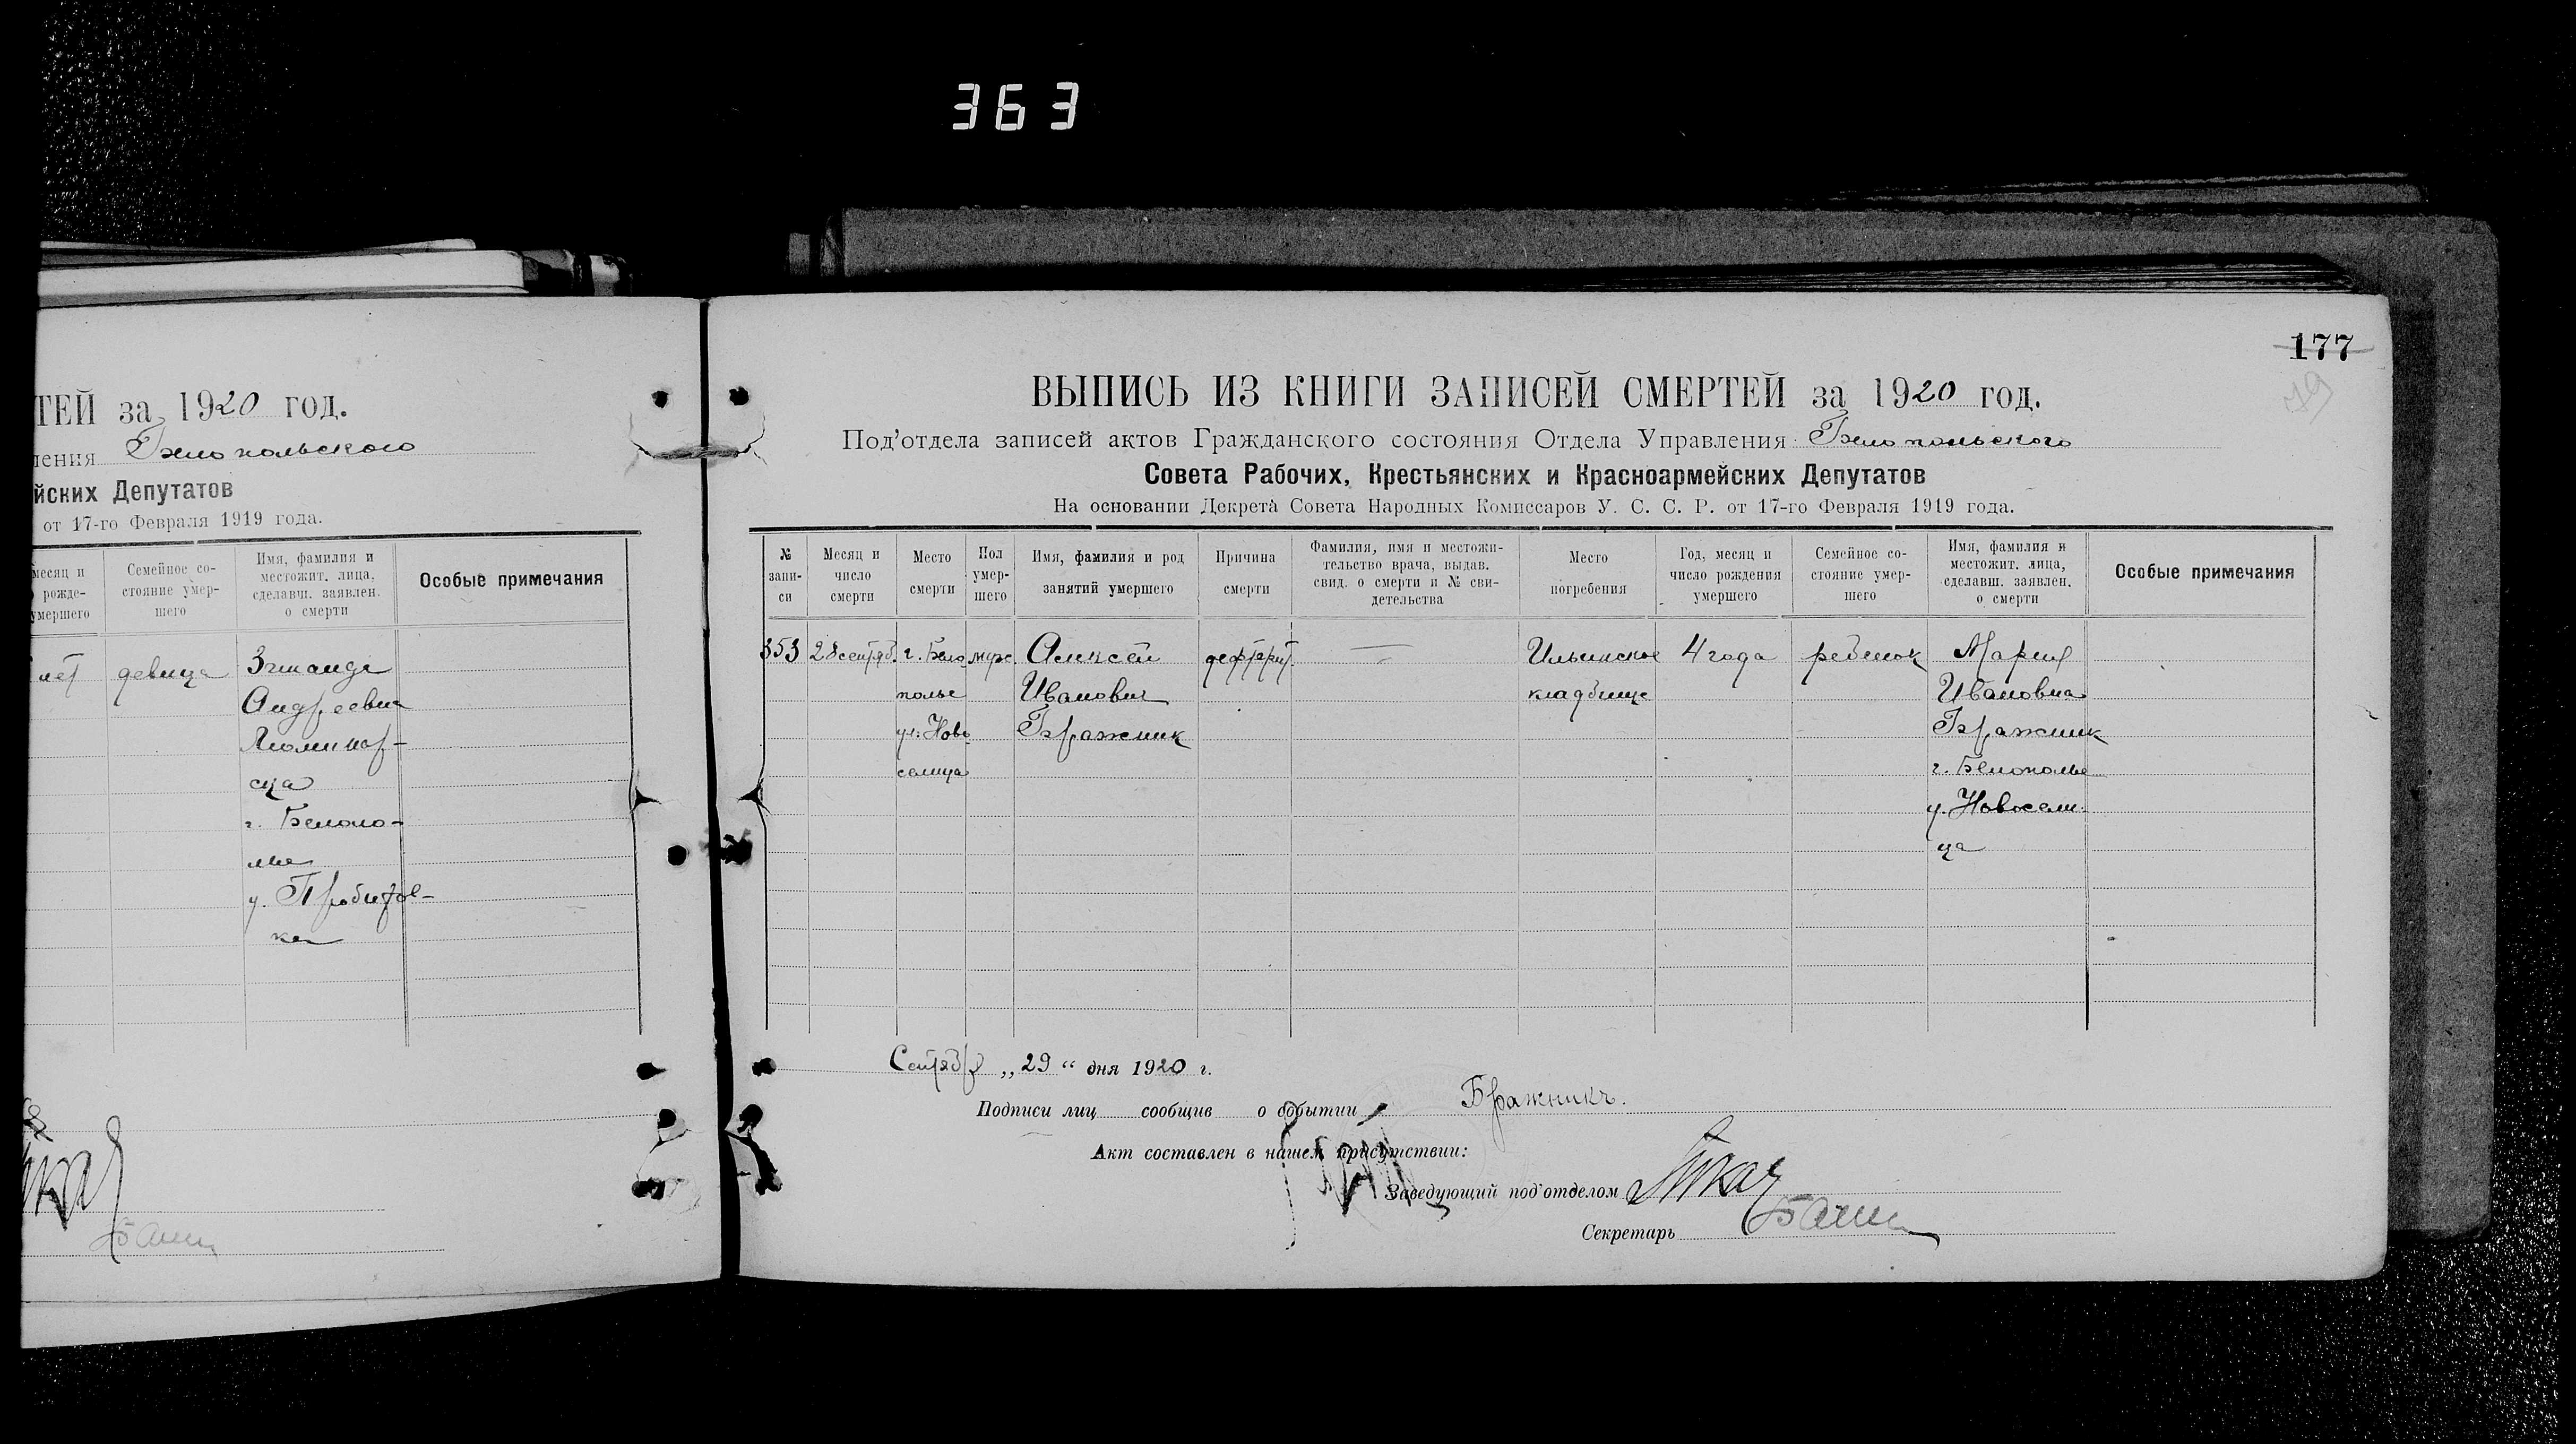 363
ТЕЙ за 1920 год.
ления Белопольского
йских Депутатов
от 17-го Февраля 1919 года.
месяц и рожде- умершего
Семейное со- стояние умер- шего
Имя, фамилия и местожит. лица, сделавш. заявлен. о смерти
Особые примечания
лет девица
Андреевна
ска
г. Белопо-
лье
у.
ка
177
79
ВЫПИСЬ ИЗ КНИГИ ЗАПИСЕЙ СМЕРТЕЙ за 1920 год.
Под'отдела записей актов Гражданского состояния Отдела Управления Белопольского
Совета Рабочих, Крестьянских и Красноармейских Депутатов
На основании Декрета Совета Народных Комиссаров У. С. С. Р. от 17-го Февраля 1919 года.
№ запи- си
Месяц и число смерти
Место смерти
Пол умер- шего
Имя, фамилия и род занятий умершего
Причина смерти
Фамилия, имя и местожи- тельство врача, выдав. свид. о смерти и № сви- детельства
Место погребения
Год, месяц и число рождения умершего
Семейное со- стояние умер- шего
Имя, фамилия и местожит. лица, сделавш. заявлен. о смерти
Особые примечания
353 28 сентяб. г. Бело муж. Алексей дефтерит. — Ильинское 4 года ребенок Мария
полье Иванович кладбище Ивановна
ул. Ново Бражник Бражник
селица г. Белополье
у. Новосели-
ца
Сентября „29“ дня 1920 г.
Подписи лиц сообщив о событии Бражникъ.
Акт составлен в нашем присутствии:
Заведующий под'отделом Ткач
Секретарь